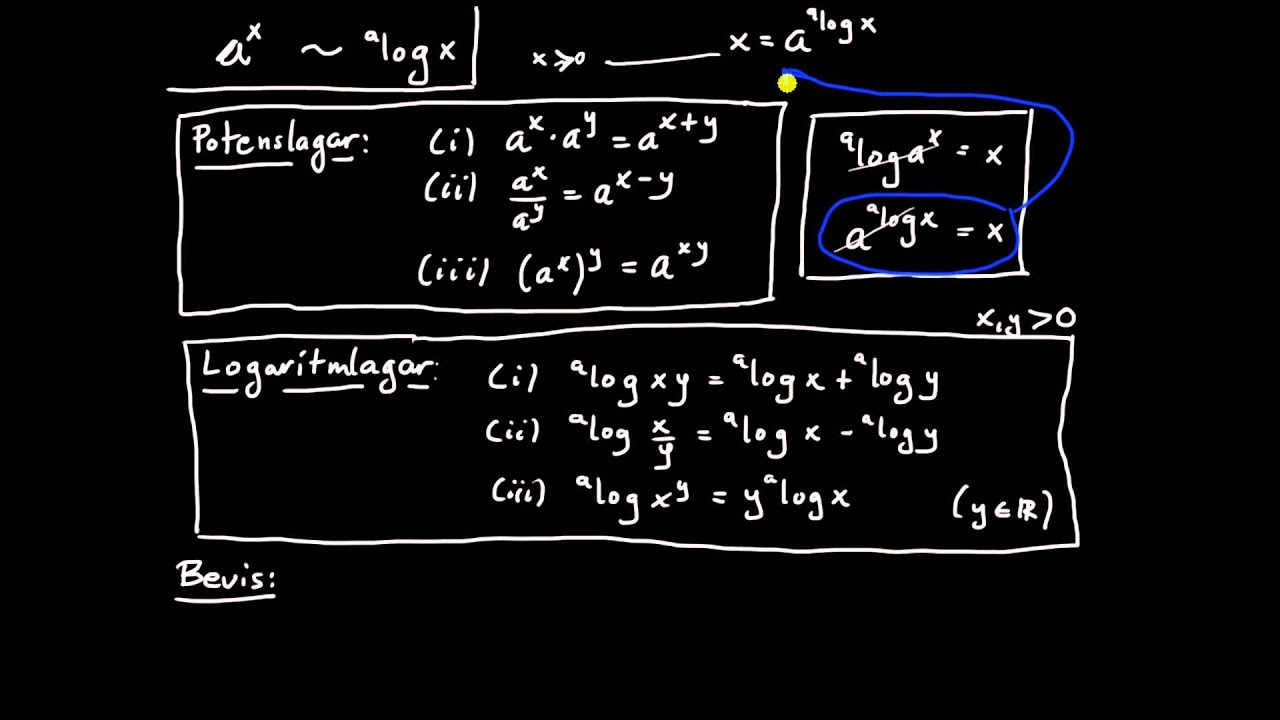 aˣ ~ ᵃlog x    x ≥ 0 ——— x = a^(ᵃlog x)
Potenslagar: (i) aˣ · aʸ = aˣ⁺ʸ
(ii) aˣ/aʸ = aˣ⁻ʸ
(iii) (aˣ)ʸ = aˣʸ
ᵃlog aˣ = x
a^(ᵃlog x) = x
x, y > 0
Logaritmlagar: (i) ᵃlog xy = ᵃlog x + ᵃlog y
(ii) ᵃlog x/y = ᵃlog x - ᵃlog y
(iii) ᵃlog xʸ = y ᵃlog x (y ∈ ℝ)
Bevis: